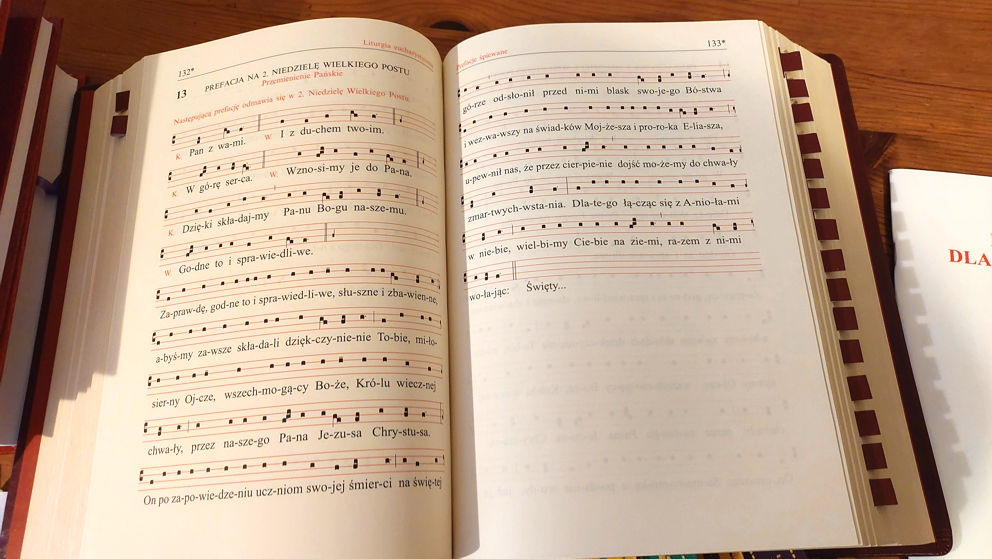 132*
Liturgia eucharystyczna
13 PREFACJA NA 2. NIEDZIELĘ WIELKIEGO POSTU
Przemienienie Pańskie
Następującą prefację odmawia się w 2. Niedzielę Wielkiego Postu.
K. Pan z wa-mi. W. I z du-chem two-im.
K. W gó-rę ser-ca. W. Wzno-si-my je do Pa-na.
K. Dzię-ki skła-daj-my Pa-nu Bo-gu na-sze-mu.
W. Go-dne to i spra-wie-dli-we.
Za-praw-dę, god-ne to i spra-wied-li-we, słu-szne i zba-wien-ne,
a-byś-my za-wsze skła-da-li dzięk-czy-nie-nie To-bie, mi-ło-
sier-ny Oj-cze, wszech-mo-gą-cy Bo-że, Kró-lu wiecz-nej
chwa-ły, przez na-sze-go Pa-na Je-zu-sa Chry-stu-sa.
On po za-po-wie-dze-niu ucz-niom swo-jej śmier-ci na świę-tej
Prefacje śpiewane
133*
gó-rze od-sło-nił przed ni-mi blask swo-je-go Bó-stwa
i wez-wa-wszy na świad-ków Moj-że-sza i pro-ro-ka E-lia-sza,
u-pew-nił nas, że przez cier-pie-nie dojść mo-że-my do chwa-ły
zmar-twych-wsta-nia. Dla-te-go łą-cząc się z A-nio-ła-mi
w nie-bie, wiel-bi-my Cie-bie na zie-mi, ra-zem z ni-mi
wo-ła-jąc: Święty...
DLA